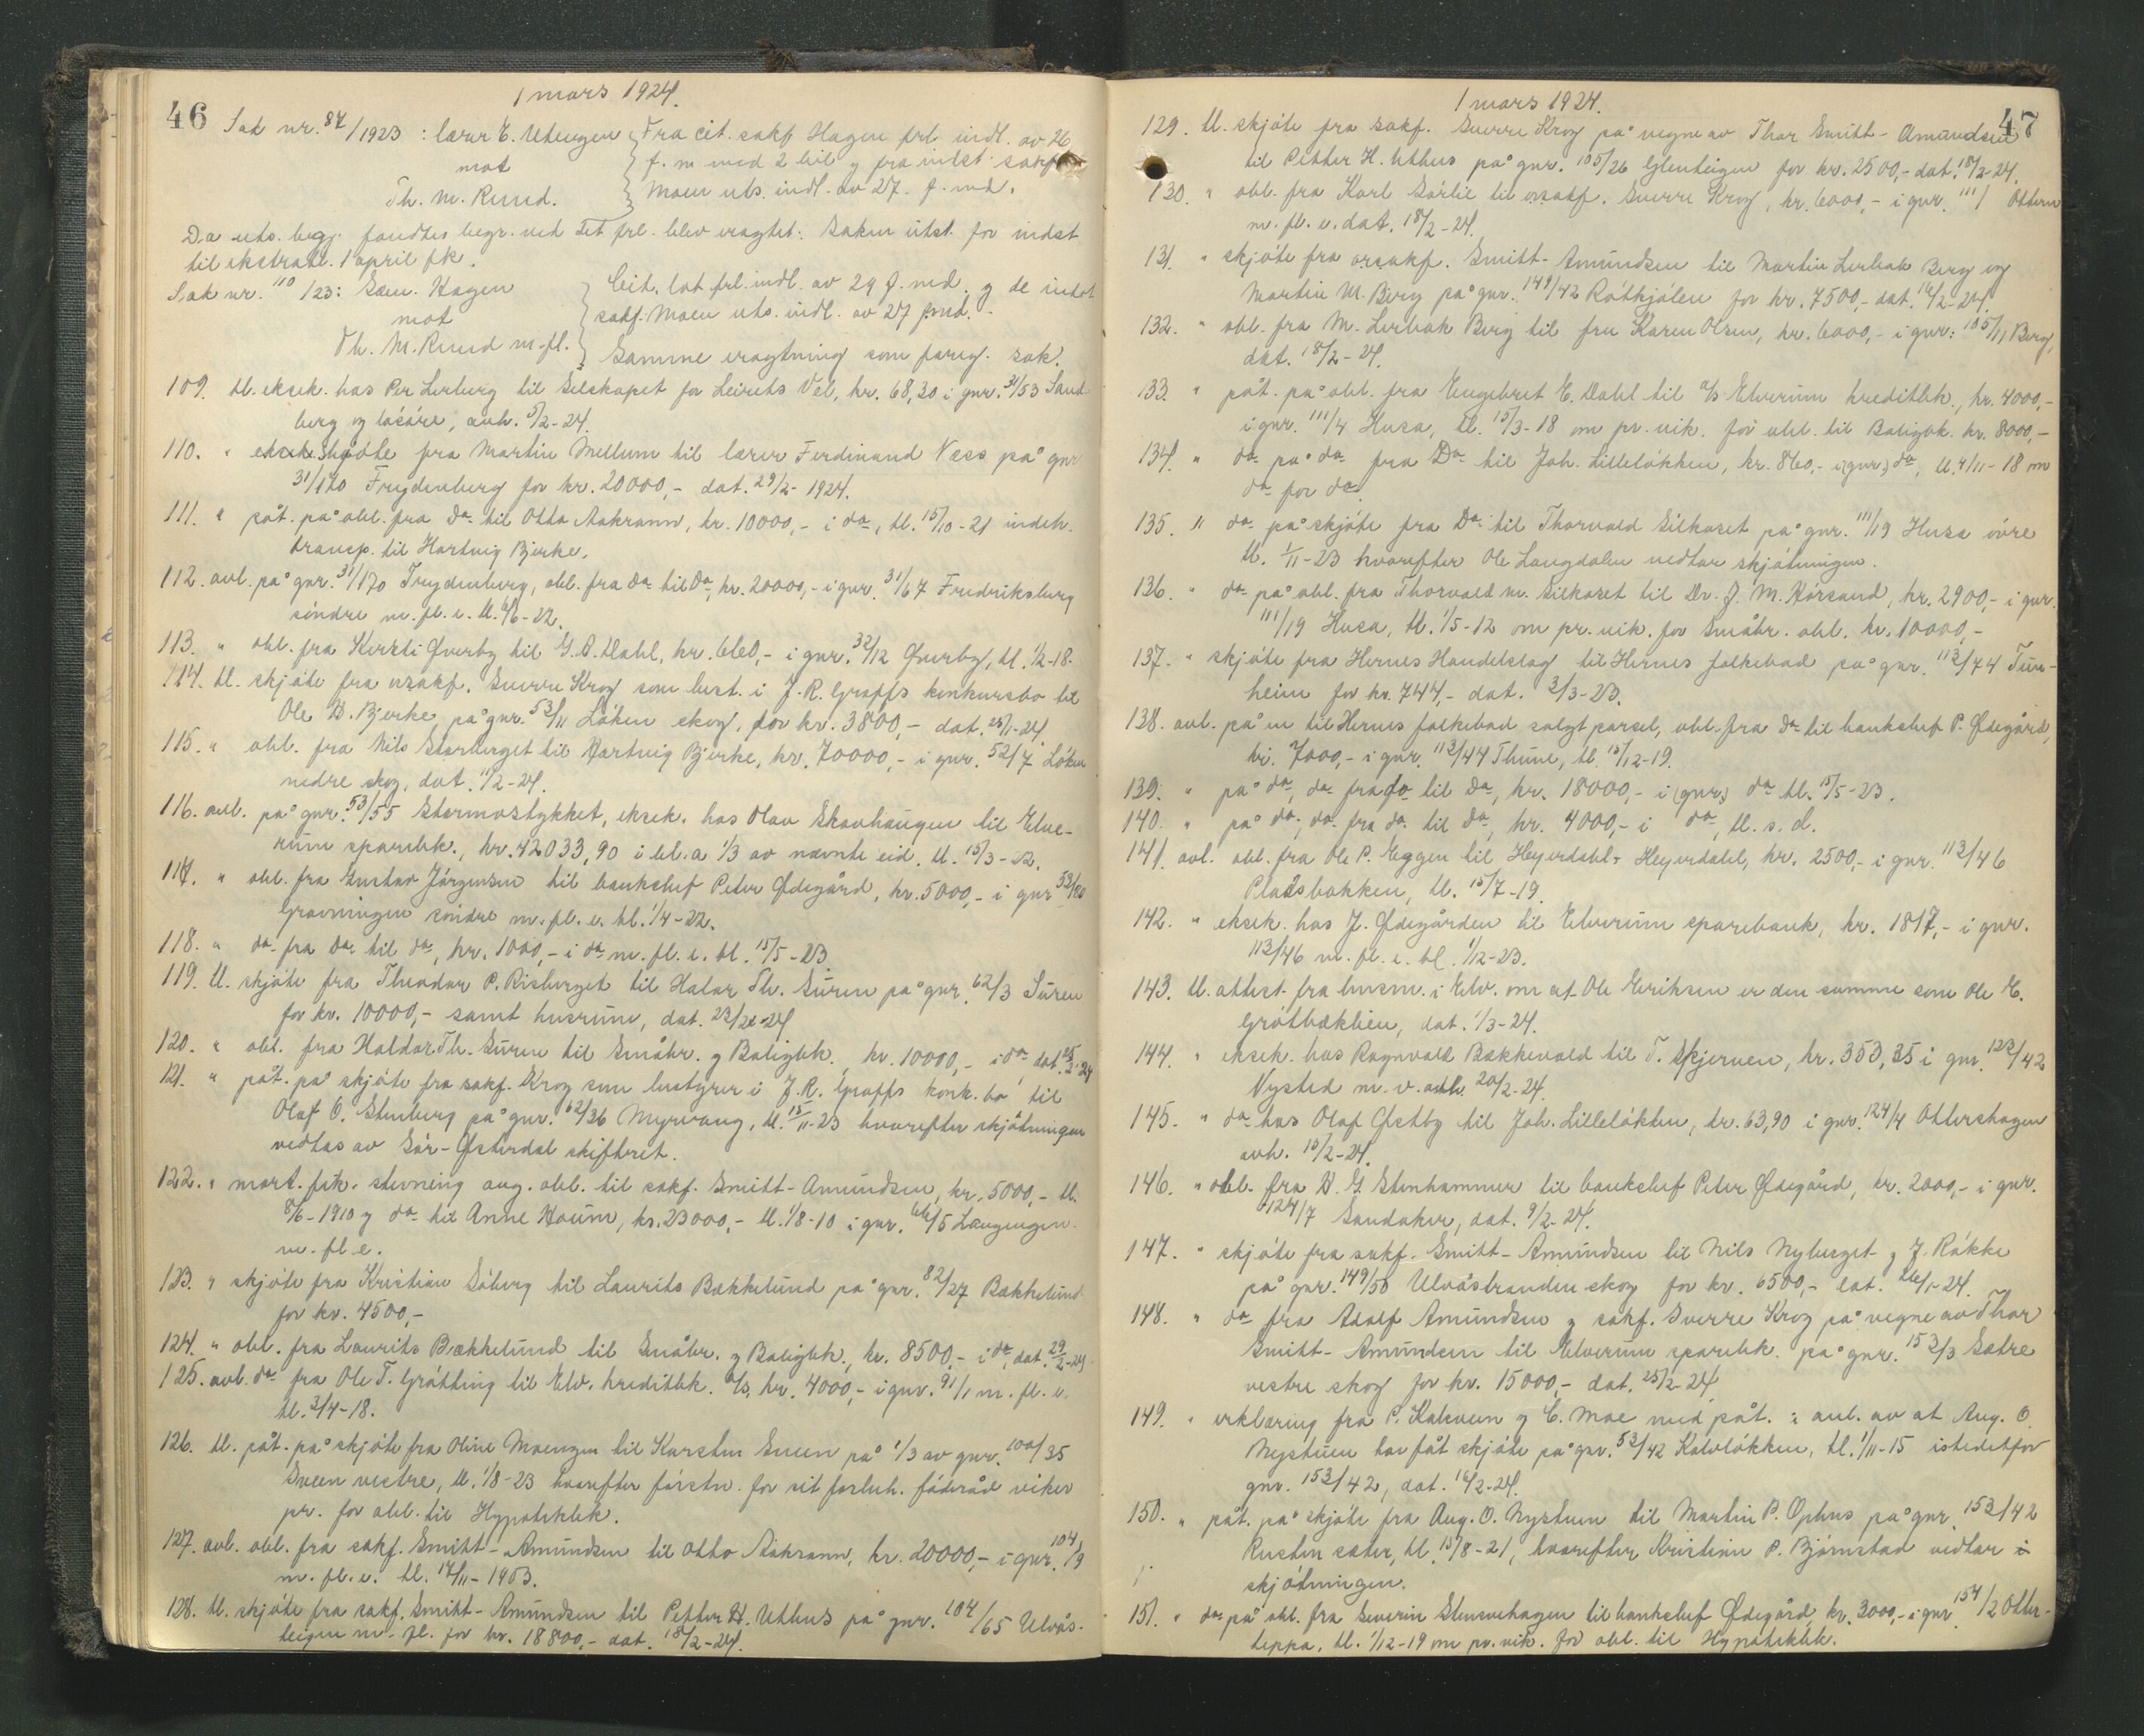 46
1 mars 1924.
Sak nr. 84/1923 : lærer E. Utengen
mot
Th. M. Ruud.
Fra cit. sakf. Hagen frl. indl. av 26
f. m. med 2 bil. g fra indst. sakf.
Moen uts. indl. av 27. f. md.
Da uts. begj. fandtes begr. ved det frl. blev eragtet: Saken utst. for indst.
til ekstrat. 1 april fk.
Sak nr. 110/23: Sam. Hagen
mot
Th. M. Ruud m. fl.
Cit. lot frl. indl. av 29 f. md. g de indst.
sakf. Moen uts. indl. av 27 f. md.
Samme eragtning som foreg. sak.
109. tl. eksek. hos Per Lerberg til Selskapet for Leirets Vel, kr. 68,30 i gnr. 31/53 Sand-
berg og løsøre, avh. 5/2-24.
110. " skjøte fra Martin Mellum til lærer Ferdinand Næss på gnr.
31/170 Frydenberg for kr. 20000,- dat. 29/2-1924.
111. " påt. på obl. fra Do til Otto Aakrann, kr. 10000,- i do, tl. 15/10-21 indeh.
transp. til Hartvig Bjerke.
112. avl. på gnr. 31/170 Frydenberg, obl. fra do til Do, kr. 20000,- i gnr. 31/67 Fredriksberg
søndre m. fl. e. tl. 1/6-22.
113. " obl. fra Kersti Qverby til G. A. Dahl, kr. 660,- i gnr. 32/12 Qverby, tl. 1/2-18.
114. tl. skjøte fra orsakf. Sverre Krog som best. i J. R. Graffs konkursbo til
Ole B. Bjerke på gnr. 53/11 Løken skog, for kr. 3800,- dat. 25/11-24.
115. " obl. fra Nils Storberget til Hartvig Bjerke, kr. 70000,- i gnr. 52/7 Løken
nedre skog, dat. 1/2-24.
116. avl. på gnr. 53/55 Stormostykket, eksek. hos Olav Skavhaugen til Elve-
rum sparebk., kr. 42033,90 i bl. a 1/3 av nævnte eid. tl. 15/3-22.
117. " obl. fra Gustav Jørgensen til bankchef Peter Ødegård, kr. 5000,- i gnr. 53/20
Gravningen søndre m. fl. e. tl. 1/4-22.
118. " do fra Do til do, kr. 1000,- i do m. fl. e. tl. 15/5-23.
119. tl. skjøte fra Theodor P. Risberget til Halvor Th. Søren på gnr. 62/3 Søren
for kr. 10000,- samt husrum, dat. 23/2-24
120. " obl. fra Haldor Th. Søren til Småbr. g Boligbk. kr. 10000,- i do dat. 25/2-24
121. " påt. på skjøte fra sakf. Krog som bestyrer i J. R. Graffs konk. bo til
Olaf O. Stenberg på gnr. 62/36 Myrvang, tl. 15/11-23 hvorefter skjøtningen
vedtas av Sør-Østerdal skifteret.
122. " mort. frk. stevning ang. obl. til sakf. Smitt-Amundsen, kr. 5000,- tl.
8/6-1910 g do til Anne Houm, kr. 23000,- tl. 1/8-10 i gnr. 66/5 Langengen
m. fl. e.
123. " skjøte fra Kristian Søberg til Laurits Bækkelund på gnr. 82/27 Bækkelund
for kr. 4500,-
124. " obl. fra Laurits Bækkelund til Småbr. g Boligbk., kr. 8500,- i do, dat. 29/2-24
125. avl. do fra Ole T. Grøtting til Elv. kreditbk. A/S, kr. 4000,- i gnr. 91/1 m. fl. e.
tl. 2/4-18.
126. tl. påt. på skjøte fra Oline Moengen til Karsten Sveen på 1/3 av gnr. 100/35
Sveen vestre, tl. 1/8-23 hvorefter førstn. for sit forbeh. føderåd viker
pr. for obl. til Hypotekbk.
127. avl. obl. fra sakf. Smitt-Amundsen til Otto Aakrann, kr. 20000,- i gnr. 104/9
m. fl. e. tl. 14/11-1903.
128. tl. skjøte fra sakf. Smitt-Amundsen til Petter H. Uthus på gnr. 104/65 Ulvås-
teigen m. fl. for kr. 18800,- dat. 18/2-24.
47
1 mars 1924.
129. tl. skjøte fra sakf. Sverre Krog på vegne av Thor Smitt-Amundsen
til Petter H. Uthus på gnr. 105/26 Glenteigen for kr. 2500,- dat. 18/2-24.
130. " obl. fra Karl Sørlie til orsakf. Sverre Krog, kr. 6000,- i gnr. 111/ Ottern
m. fl. e. dat. 18/2-24.
131. " skjøte fra orsakf. Smitt-Amundsen til Martin Lerbak Berg og
Martin M. Berg på gnr. 149/42 Råtkjølen for kr. 7500,- dat. 16/2-24.
132. " obl. fra M. Lerbak Berg til fru Karen Olsen, kr. 6000,- i gnr: 105/11 Berg,
dat. 18/2-24.
133. " påt. på obl. fra Engebret E. Dahl til A/S Elverum kreditbk., kr. 4000,-
i gnr. 111/4 Husa, tl. 15/3-18 om pr. vik. for obl. til Boligbk. kr. 8000,-
134. " do på do fra Do til Joh. Lilleløkken, kr. 860,- i (gnr.) do, tl. 4/11-18 om
do for do.
135. " do på skjøte fra Do til Thorvald Silkoset på gnr. 111/19 Husa øvre
tl. 1/11-23 hvorefter Ole Langdalen vedtar skjøtningen.
136. " do på obl. fra Thorvald m. Silkoset til Dr. J. M. Kørsand, kr. 2900,- i gnr.
111/19 Husa, tl. 1/5-12 om pr. vik. for Småbr. obl. kr. 10000,-
137. " skjøte fra Hernes Handelslag til Hernes folkebad på gnr. 113/44 Tun-
heim for kr. 744,- dat. 3/3-23.
138. avl. på en til Hernes folkebad solgt parsel, obl. fra do til bankchef P. Ødegård,
kr. 7000,- i gnr. 113/44 Thune, tl. 15/12-19.
139. " på do, do fra do til Do, kr. 18000,- i (gnr.) do tl. 15/5-23.
140. " på do, do fra do til Do, kr. 4000,- i do, tl. s. d.
141. avl. obl. fra Ole P. Eggen til Heyerdahl + Heyerdahl, kr. 2500,- i gnr. 113/46
Plassbakken, tl. 15/7-19.
142. " eksek. hos J. Ødegården til Elverum sparebank, kr. 1817,- i gnr.
113/46 m. fl. e. tl. 1/12-23.
143. tl. attest fra lensm. i Elv. om at Ole Eriksen er den samme som Ole E.
Grøtbæklien, dat. 1/3-24.
144. " eksek. hos Ragnvald Bækkevold til T. Skjerven, kr. 353,35 i gnr. 123/42
Nysted m. v. avh. 20/2-24.
145. " do hos Olaf Østby til Joh. Lilleløkken, kr. 63,90 i gnr. 124/4 Ottershagen
avh. 15/2-24.
146. " obl. fra D. G. Stenhammer til bankchef Peter Ødegård, kr. 2000,- i gnr.
124/7 Sandaker, dat. 9/2-24.
147. " skjøte fra sakf. Smitt-Amundsen til Nils Nyberget g J. Røkke
på gnr. 149/50 Ulvåsbranden skog for kr. 6500,- dat. 26/1-24.
148. " do fra Adolf Amundsen g sakf. Sverre Krog på vegne av Thor
Smitt-Amundsen til Elverum sparebk. på gnr. 153/3 Sætre
vestre skog for kr. 15000,- dat. 25/2-24
149. " erklæring fra P. Kalveen g E. Moe med påt. : anl. av at Aug. O.
Nystuen har fåt skjøte på gnr. 53/42 Kalvløkken, tl. 1/11-15 istedetfor
gnr. 153/42, dat. 16/2-24.
150. " påt. på skjøte fra Aug. O. Nystuen til Martin P. Ophus på gnr. 153/42
Rusten sæter, tl. 15/8-21, hvorefter Kristine P. Bjørnstad vedtar
skjøtningen.
151. " do på obl. fra Severin Stensvehagen til bankchef Ødegård, kr. 3000,- i gnr. 154/2 Otter-
teppa, tl. 1/12-19 om pr. vik. for obl. til Hypotekbk.